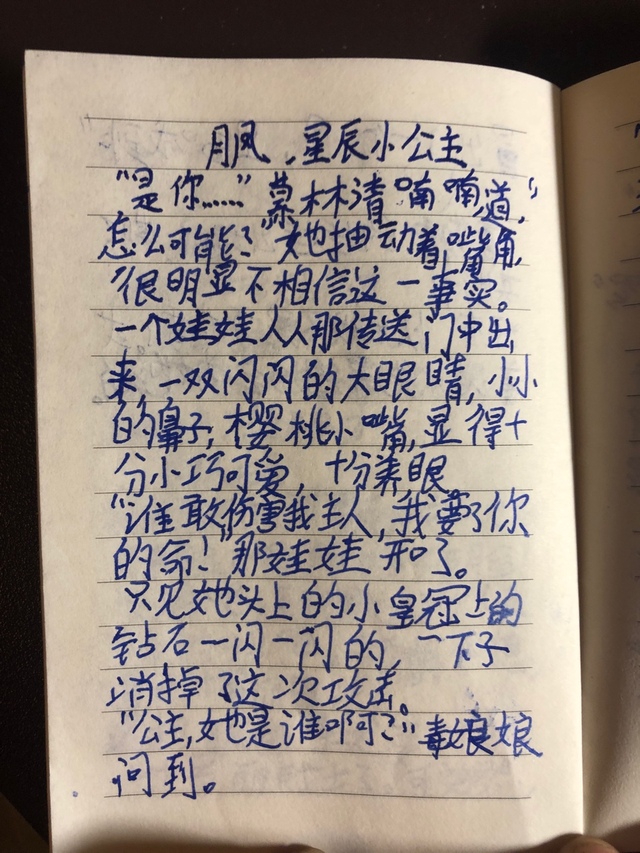 月凤、星辰小公主
“是你……”慕林清喃喃道，“
怎么可能？”她抽动着嘴角，
很明显不相信这一事实。
一个娃娃人从那传送门中出
来，一双闪闪的大眼睛，小小
的鼻子，樱桃小嘴，显得十
分小巧可爱，十分养眼
“谁敢伤害我主人，我要了你
的命！”那娃娃开口了。
只见她头上的小皇冠上的
钻石一闪一闪的，一下子
消掉了这次攻击。
“公主，她是谁啊？”毒娘娘
问到。